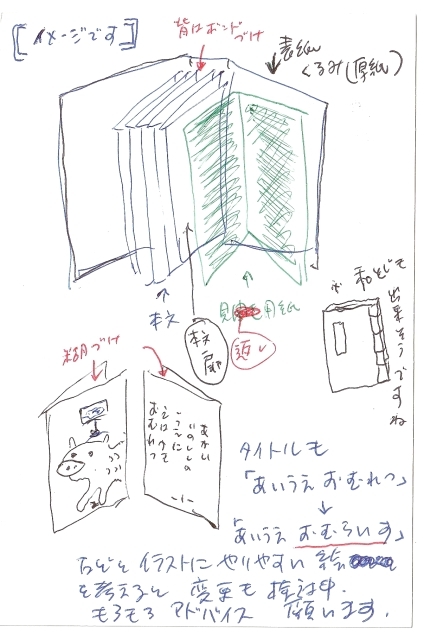 [イメージです]
背はボンドづけ
表紙
くるみ(厚紙)
本文
見返し用紙
本文扉
糊づけ
※和とじも
出来そうですね
あかい
いのししの
うえに
えはがき
おむれつ
タイトルも
「あいうえ おむれつ」
↓
「あいうえ おむらいす」
などと イラストに やりやすい 絵
を考えると 変更も 検討中.
もろもろ アドバイス 願います.